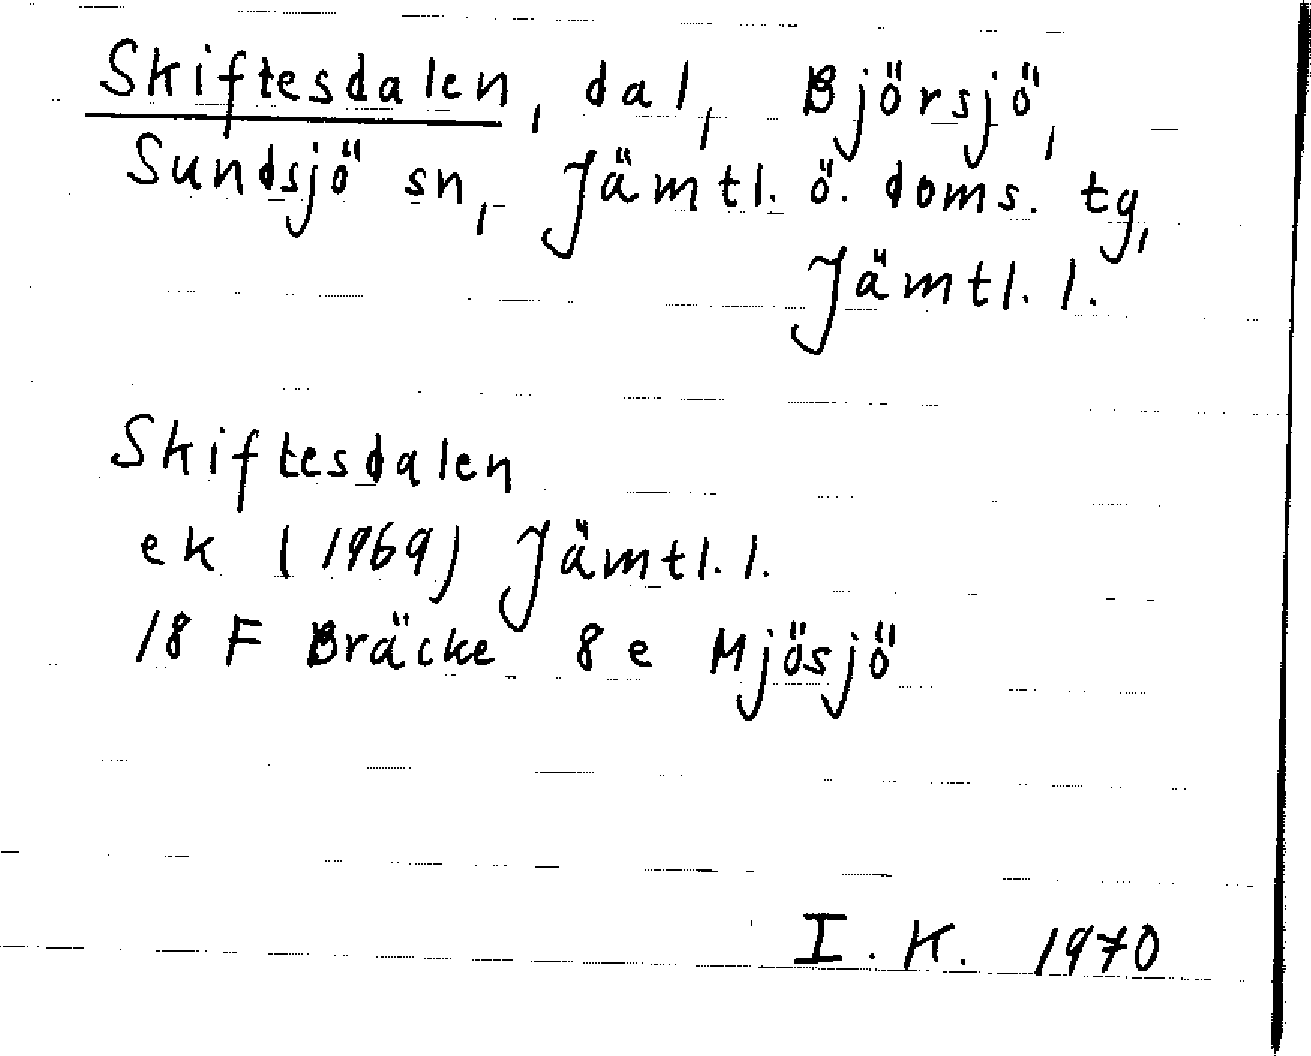 Skiftesdalen, dal, Björsjö,
Sundsjö sn, Jämtl. ö. doms. tg,
Jämtl. l.
Skiftesdalen
ek (1969) Jämtl. l.
18 F Bräcke 8 e Mjösjö
I. K. 1970